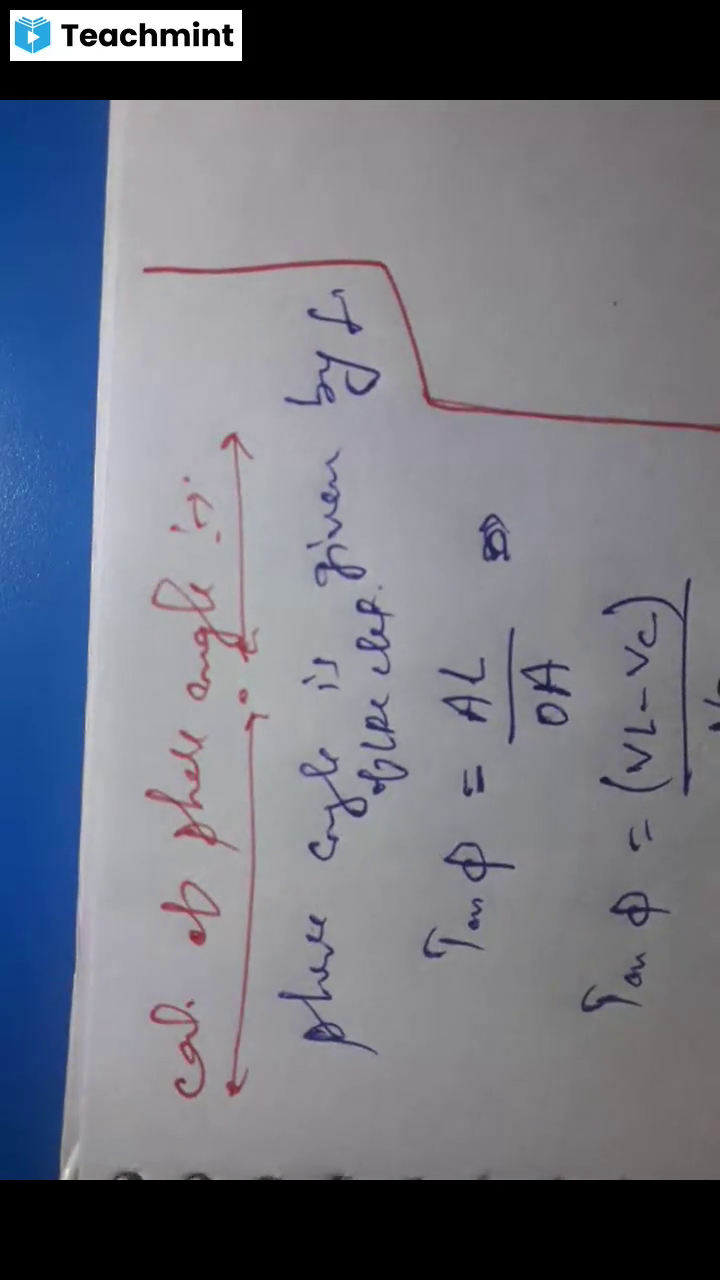 Teachmint
cal. of phase angle :→
phase angle is given by :-
of LRC ckt.
Tan φ = AL / OA
Tan φ = (VL - Vc)